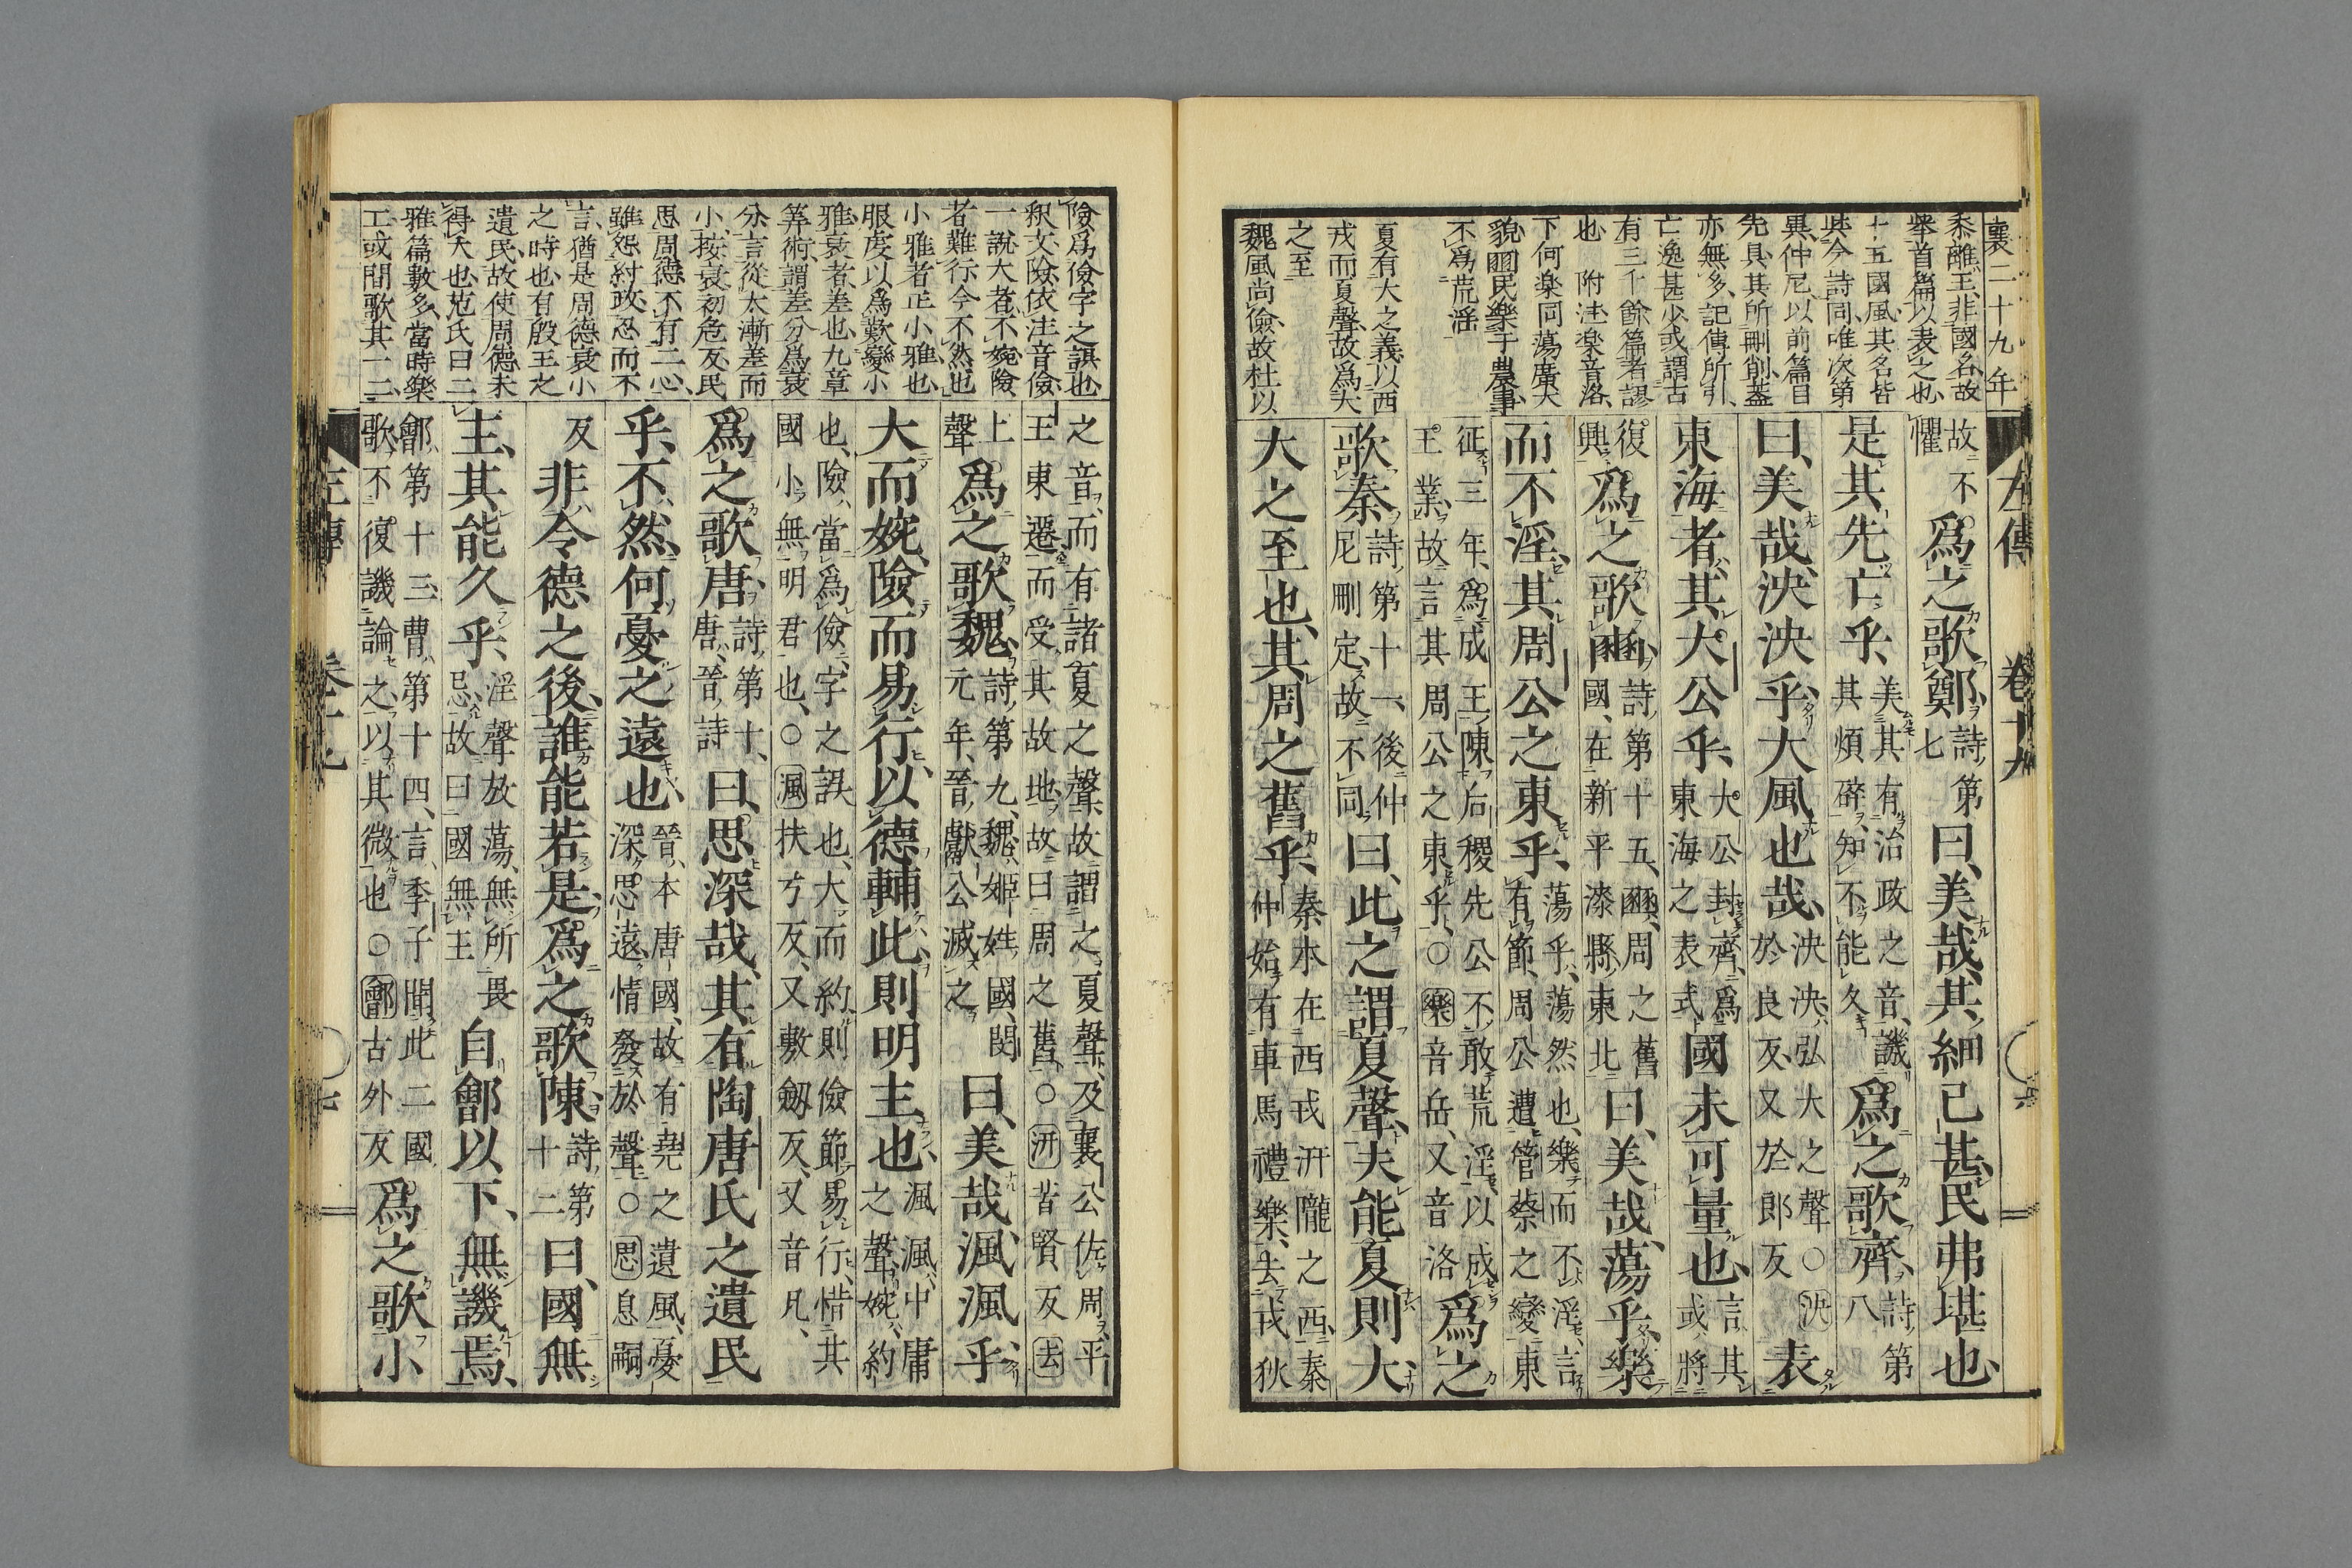 襄二十九年
黍離王非國名故
舉首篇以表之也
十五國風其名皆
與今詩同唯次第
異仲尼以前篇目
先具其所刪削蓋
亦無多記傳所引
亡逸甚少或謂古
有三千餘篇者謬
也 附注楽音洛
下何楽同蕩廣大
貌豳民樂于農事
不為荒滛
夏有大之義以西
戎而夏聲故為大
之至
魏風尚儉故杜以
左傳 卷十九
故不
懼 爲之歌鄭詩第
七 曰美哉其細已甚民弗堪也
是其先亡乎美其有治政之音譏
其煩碎知不能久 爲之歌齊詩第
八
曰美哉泱泱乎大風也哉泱泱弘大之聲○泱
於良反又於郎反 表
東海者其大公乎大公封齊爲
東海之表式 國未可量也言其
或將
復
興 爲之歌豳詩第十五豳周之舊
國在新平漆縣東北 曰美哉蕩乎樂
而不淫其周公之東乎蕩乎蕩然也樂而不淫言
有節周公遭管蔡之變東
征三年爲成王陳后稷先公不敢荒淫以成
王業故言其周公之東乎○樂音岳又音洛 爲之
歌秦詩第十一後仲
尼刪定故不同 曰此之謂夏聲夫能夏則大
大之至也其周之舊乎秦本在西戎汧隴之西秦
仲始有車馬禮樂去戎狄
險為儉字之誤也
釈文險依注音儉
一説大者不婉險
者難行今不然也
小雅者正小雅也
服虔以為歎變小
雅衰者差也九章
筭術謂差分為衰
分言從大漸差而
小按衰初危反民
思周德不有二心
雖怨紂政忍而不
言猶是周德衰小
之時也有殷王之
遺民故使周德未
得大也范氏曰二
雅篇數多當時樂
工或間歌其一二
之音而有諸夏之聲故謂之夏聲及襄公佐周平
王東遷而受其故地故曰周之舊○汧苦賢反去
上
聲 爲之歌魏詩第九魏姬姓國閔
元年晉獻公滅之 曰美哉渢渢乎
大而婉險而易行以德輔此則明主也渢渢中庸
之聲婉約
也險當爲儉字之誤也大而約則儉節易行惜其
國小無明君也○渢扶弓反又敷劔反又音凡
爲之歌唐詩第十
唐晉詩 曰思深哉其有陶唐氏之遺民
乎不然何憂之遠也晉本唐國故有堯之遺風憂
深思遠情發於聲○思息嗣
反 非令德之後誰能若是爲之歌陳詩第
十二 曰國無
主其能久乎淫聲放蕩無所畏
忌故曰國無主 自鄶以下無譏焉
鄶第十三曹第十四言季子聞此二國
歌不復譏論之以其微也○鄶古外反 爲之歌小
左傳 卷十九 七